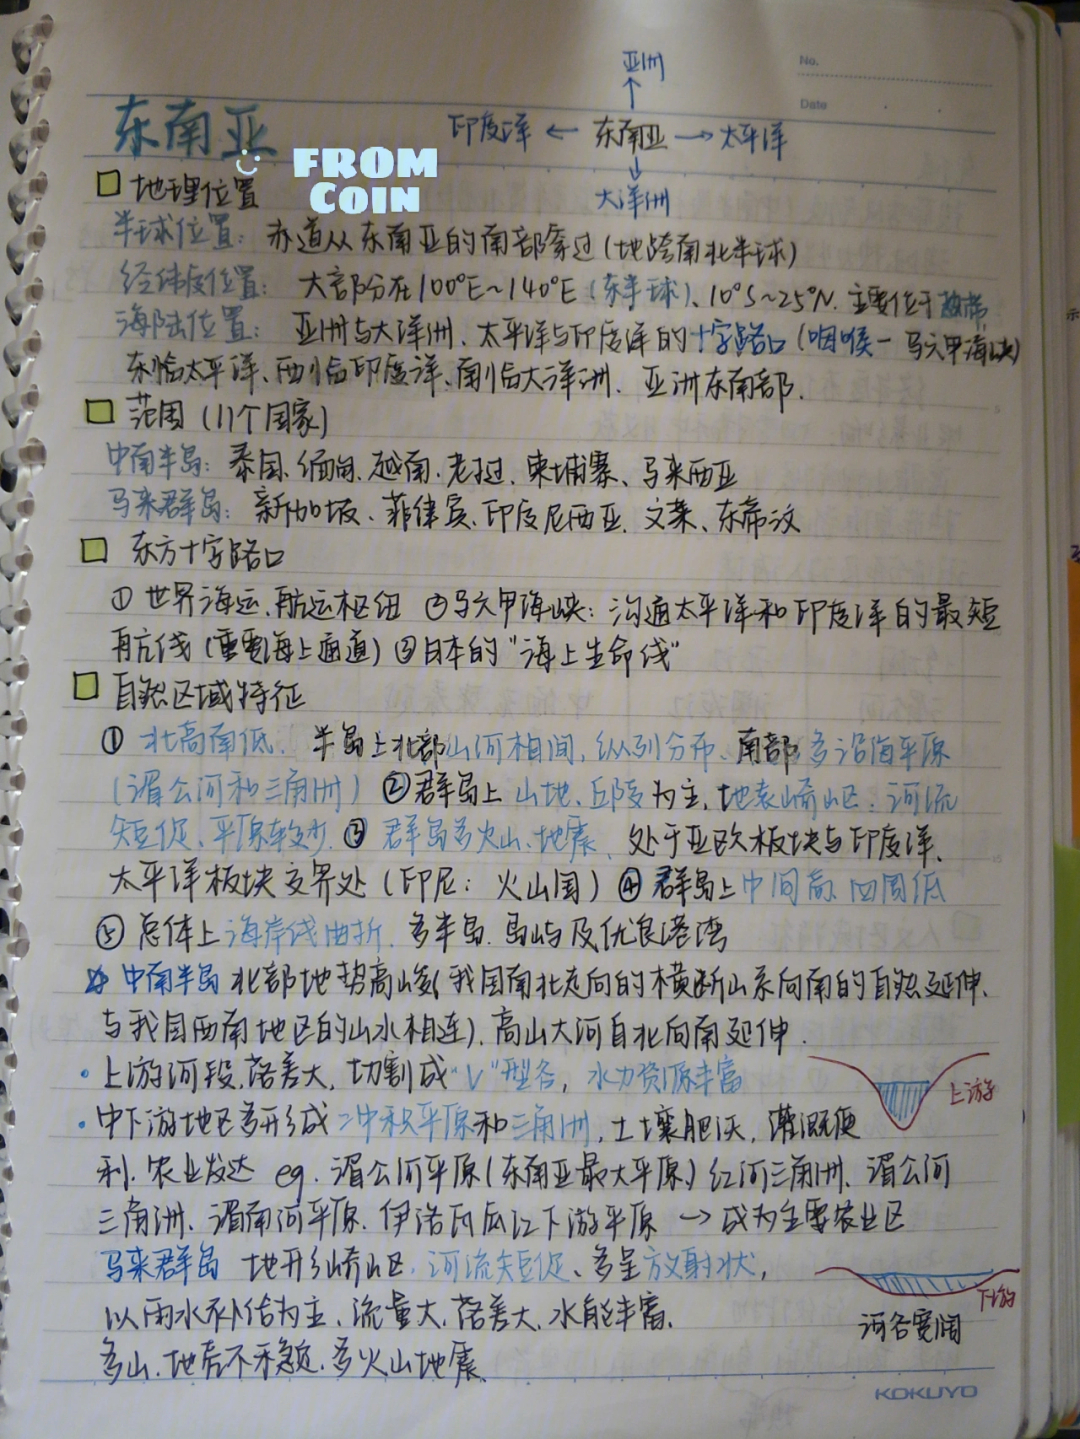 亚洲
No.
Date
东南亚
印度洋 ← 东南亚 → 太平洋
FROM
COIN
大洋洲
地理位置
半球位置：赤道从东南亚的南部穿过（地跨南北半球）
经纬度位置：大部分在100°E~140°E（东半球）、10°S~25°N. 主要位于热带
海陆位置：亚洲与大洋洲、太平洋与印度洋的十字路口（咽喉－马六甲海峡）
东临太平洋、西临印度洋、南临大洋洲、亚洲东南部.
范围（11个国家）
中南半岛：泰国、缅甸、越南、老挝、柬埔寨、马来西亚
马来群岛：新加坡、菲律宾、印度尼西亚、文莱、东帝汶
东方十字路口
① 世界海运、航运枢纽 ②马六甲海峡：沟通太平洋和印度洋的最短
航线（重要海上通道）③日本的“海上生命线”
自然区域特征
① 北高南低. 半岛上北部山河相间，纵列分布、南部多沿海平原
（湄公河和三角洲）②群岛上山地、丘陵为主，地表崎岖；河流
短促、平原较少 ③ 群岛多火山、地震、处于亚欧板块与印度洋、
太平洋板块交界处（印尼：火山国）④ 群岛上中间高 四周低
⑤ 总体上海岸线曲折、多半岛、岛屿及优良港湾
☆ 中南半岛 北部地势高峻（我国南北走向的横断山系向南的自然延伸、
与我国西南地区的山水相连），高山大河自北向南延伸.
· 上游河段，落差大，切割成“V”型谷，水力资源丰富
上游
· 中下游地区多形成冲积平原和三角洲，土壤肥沃，灌溉便
利、农业发达 eg. 湄公河平原（东南亚最大平原）红河三角洲、湄公河
三角洲、湄南河平原、伊洛瓦底江下游平原 → 成为主要农业区
马来群岛 地形崎岖. 河流短促、多呈放射状，
下游
以雨水补给为主、流量大、落差大、水能丰富、
河谷宽阔
多山、地壳不稳定、多火山地震、
KOKUYO